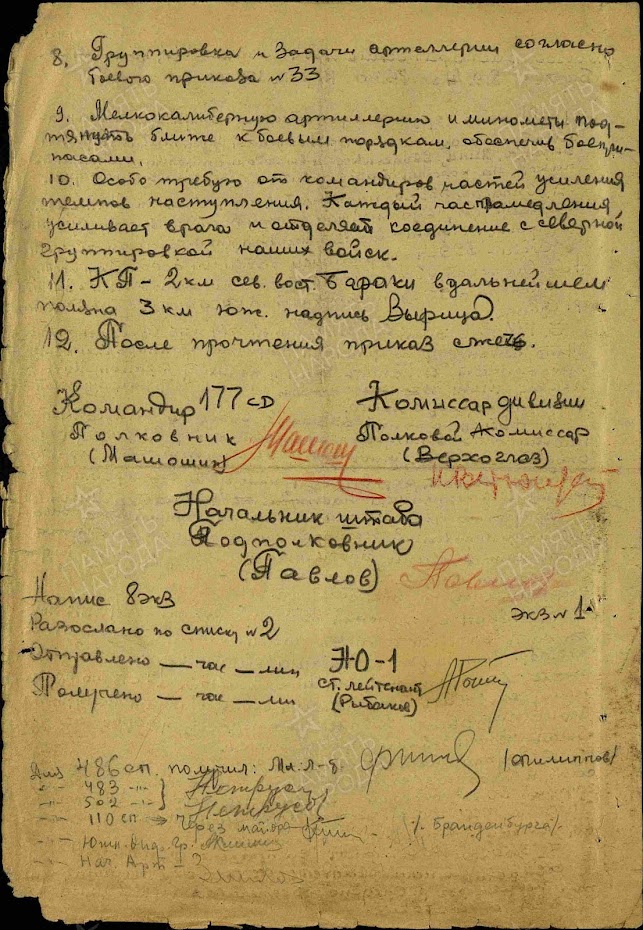 8. Группировка и задачи артеллерии согласно
боевого приказа №33
9. Мелкокалиберную артиллерию и минометы под-
тянуть ближе к боевым порядкам, обеспечив боепри-
пасами.
10. Особо требую от командиров частей усиления
темпов наступления. Каждый час замедления
усиливает врага и отделяет соединение с северной
группировкой наших войск.
11. КП - 2 км сев. вост. Бараки в дальнейшем
поляна 3 км юж. надпись Вырица.
12. После прочтения приказ сжечь.
Командир 177 сд
Полковник
(Машошин)
Комиссар дивизии
Полковой Комиссар
(Верхоглаз)
Начальник штаба
Подполковник
(Павлов)
Напис 8 экз
экз № 1
Разослано по списку №2
Отправлено — час — мин
Получено — час — мин
НО-1
ст. лейтенант
(Рыбаков)
Для 486 сп. получил: Мл. л-т (Филиппов)
-"- 483 -"-
-"- 502 -"-
-"- 110 сп → Через майора /Бранденбурга/.
-"- Южн. гр.
-"- Нач. Арт -
ПАМЯТЬ
НАРОДА